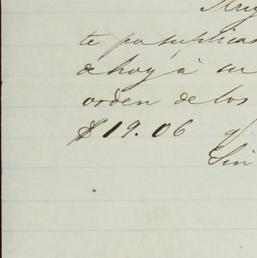 Muy
te
de hoy á su
orden de los
$19.06
Sin